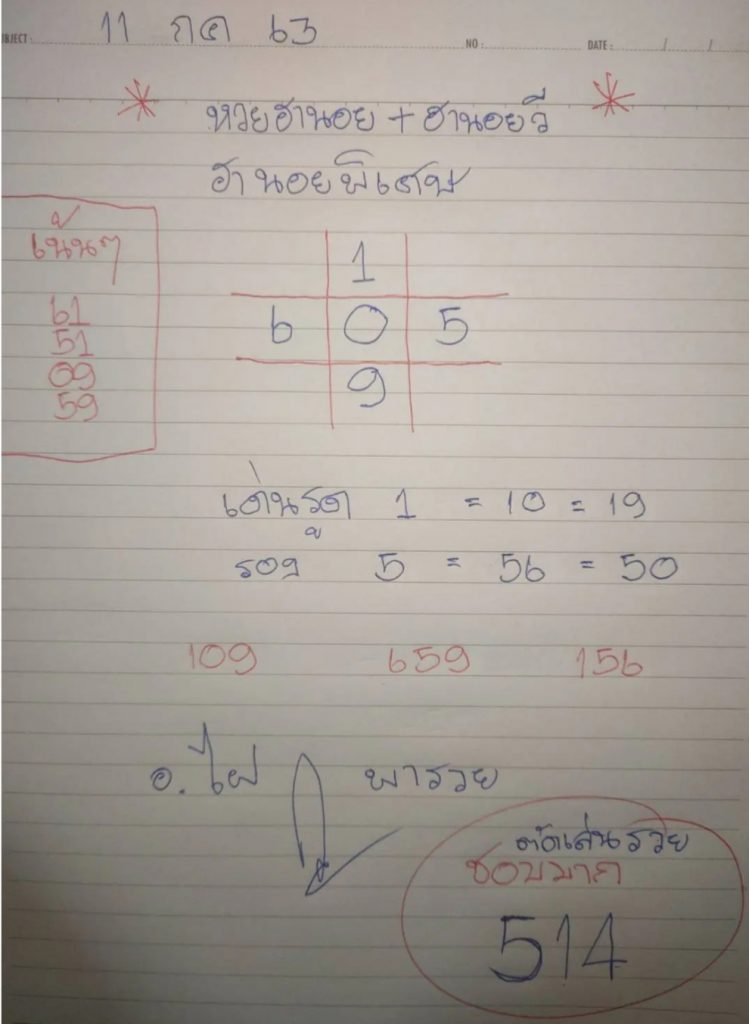 11 กค 63
SUBJECT : NO : DATE : / /
* หวยฮานอย + ฮานอยวี *
ฮานอยพิเศษ
เน้นๆ
61
51
09
59
1
6 0 5
9
เด่นรูด 1 = 10 = 19
รอง 5 = 56 = 50
109 659 156
อ. ไฝ พารวย
ชอบมาก
514